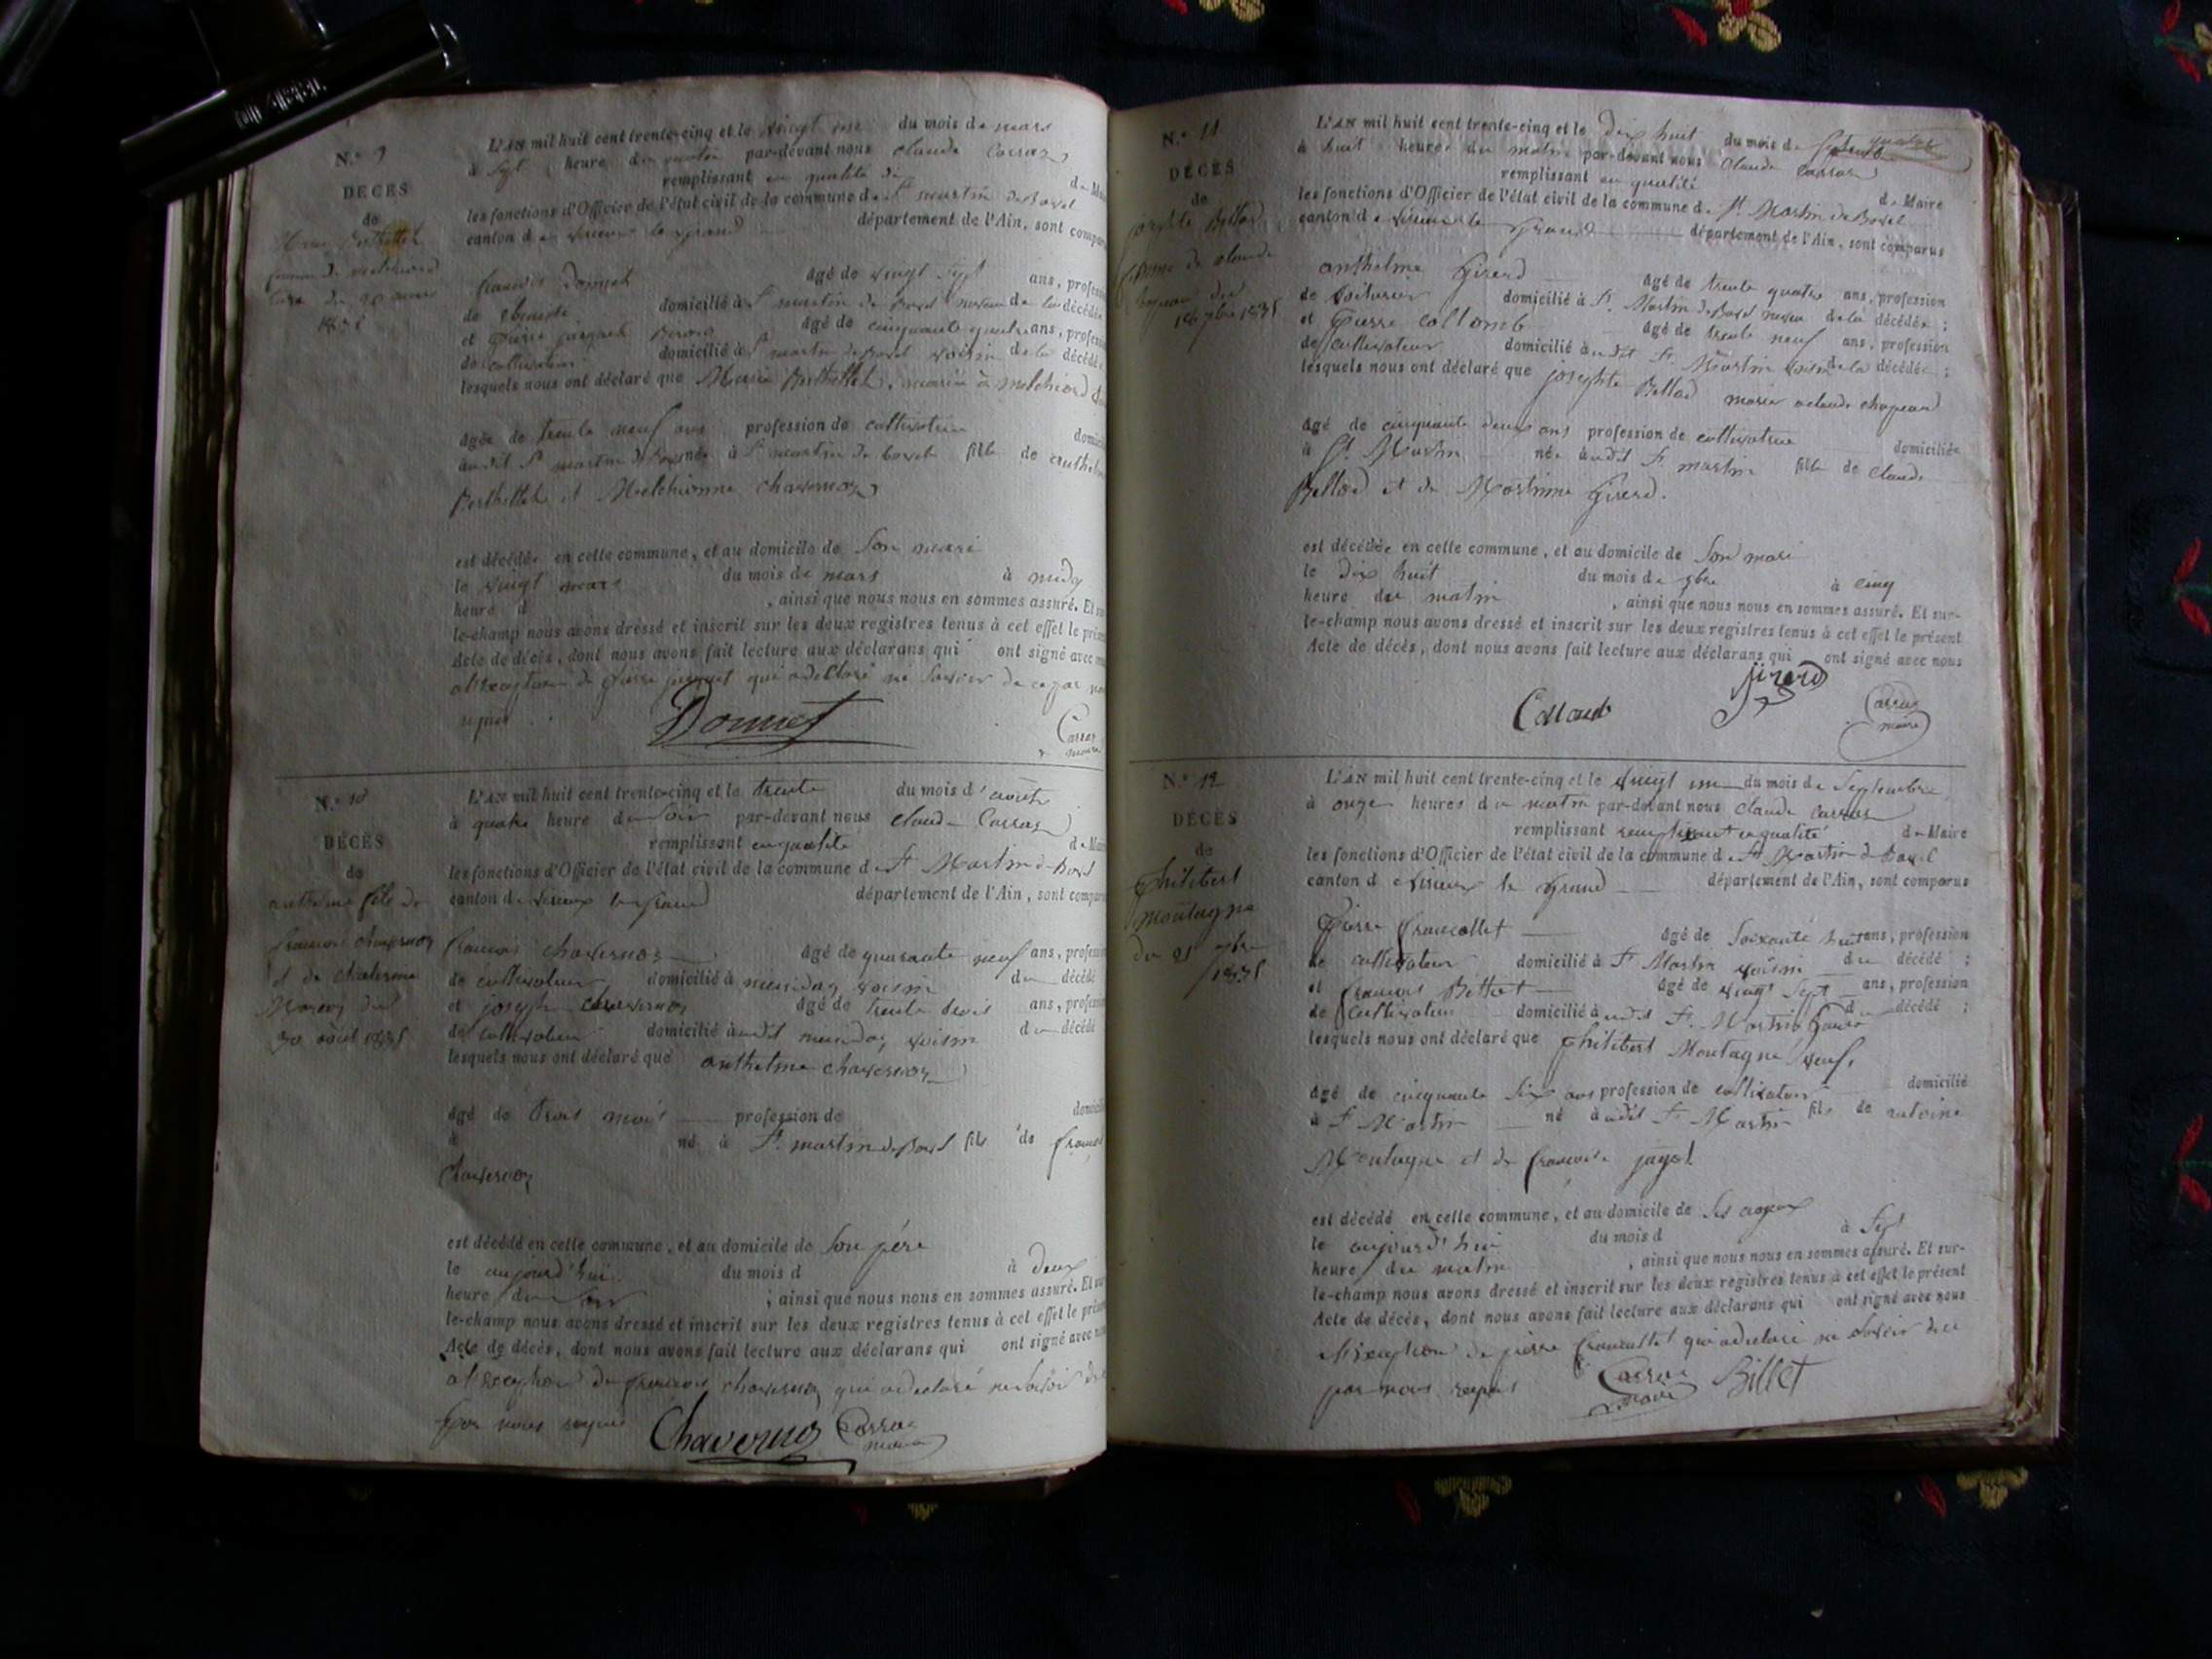 N.º 9
DÉCÈS
de
Marie Berthellet
femme de melchiord
du 20 mars
L'AN mil huit cent trente-cinq et le vingt un du mois de mars
à sept heure du matin par-devant nous claude Carraz
remplissant en qualité de
d Maire
les fonctions d'Officier de l'état civil de la commune de St martin de Bavel
canton de virieux le grand département de l'Ain, sont comparus
françois Donnet âgé de vingt sept ans, profession
de domicilié à St martin de Bavel neveu de la décédée
et Pierre âgé de cinquante quatre ans, profession
de cultivateur domicilié à St martin de Bavel voisin de la décédée
lesquels nous ont déclaré que Marie Berthellet, mariée à melchiord
âgée de trente neuf ans profession de cultivatrice domiciliée
audit St martin de Bavel née à St martin de bavel fille de anthelme
Berthellet et Melchionne chavernoz
est décédée en cette commune, et au domicile de son mari
le vingt mars du mois de mars à midy
heure d , ainsi que nous nous en sommes assuré. Et sur-
le-champ nous avons dressé et inscrit sur les deux registres tenus à cet effet le présent
Acte de décès, dont nous avons fait lecture aux déclarans qui ont signé avec nous
à l'exception de pierre qui a déclaré ne savoir de ce par nous
requis
Donnet
Carraz
maire
N.º 10
DÉCÈS
de
anthelme fils de
francois chavernoz
et de
du
30 août 1835
L'AN mil huit cent trente-cinq et le trente du mois d'août
à quatre heure du soir par-devant nous claude Carraz
remplissant en qualité de Maire
les fonctions d'Officier de l'état civil de la commune de St Martin de Bavel
canton de virieux le grand département de l'Ain, sont comparus
francois chavernoz âgé de quarante neuf ans, profession
de cultivateur domicilié à voisin du décédé
et joseph chavernoz âgé de trente trois ans, profession
de cultivateur domicilié audit voisin du décédé
lesquels nous ont déclaré que anthelme chavernoz
âgé de trois mois profession de domicilié
à né à St martin de Bavel fils de francois
chavernoz
est décédé en cette commune, et au domicile de son père
le aujourd'hui du mois d à deux
heure du soir ; ainsi que nous nous en sommes assuré. Et sur-
le-champ nous avons dressé et inscrit sur les deux registres tenus à cet effet le présent
Acte de décès, dont nous avons fait lecture aux déclarans qui ont signé avec nous
à l'exception de francois chavernoz qui a déclaré ne savoir de ce
par nous requis
Chavernoz
Carraz
maire
N.º 11
DÉCÈS
de
josephte Bellod
femme de claude
chapeau du
18 7bre 1835
L'AN mil huit cent trente-cinq et le dix huit du mois de
à huit heures du matin par-devant nous claude Carraz
remplissant en qualité de Maire
les fonctions d'Officier de l'état civil de la commune de St Martin de Bavel
canton de virieux le grand département de l'Ain, sont comparus
anthelme Girerd âgé de trente quatre ans, profession
de voiturier domicilié à St Martin de Bavel neveu de la décédée ;
et Pierre Collomb âgé de trente neuf ans, profession
de cultivateur domicilié audit St Martin voisin de la décédée ;
lesquels nous ont déclaré que josephte Bellod mariée a claude chapeau
âgé de cinquante deux ans profession de cultivatrice domiciliée
à St Martin née audit St martin fille de claude
Bellod et de Martinne Girerd.
est décédée en cette commune, et au domicile de son mari
le dix huit du mois de 7bre à cinq
heure du matin , ainsi que nous nous en sommes assuré. Et sur-
le-champ nous avons dressé et inscrit sur les deux registres tenus à cet effet le présent
Acte de décès, dont nous avons fait lecture aux déclarans qui ont signé avec nous
girerd
Carraz
maire
N.º 12
DÉCÈS
de
philibert
montagne
du 21 7bre
1835
L'AN mil huit cent trente-cinq et le vingt un du mois de Septembre
à onze heures du matin par-devant nous claude Carraz
remplissant remplissant en qualité de Maire
les fonctions d'Officier de l'état civil de la commune de St Martin de Bavel
canton de virieux le Grand département de l'Ain, sont comparus
Pierre francollet âgé de soixante huit ans, profession
de cultivateur domicilié à St Martin voisin du décédé ;
et francois Billet âgé de vingt sept ans, profession
de cultivateur domicilié audit St Martin du décédé ;
lesquels nous ont déclaré que philibert Montagne veuf,
âgé de cinquante six ans profession de cultivateur domicilié
à St Martin né audit St Martin fils de antoine
Montagne et de francoise jagot
est décédé en cette commune, et au domicile de ses ayeux
le aujourd'hui du mois d à sept
heure du matin , ainsi que nous nous en sommes assuré. Et sur-
le-champ nous avons dressé et inscrit sur les deux registres tenus à cet effet le présent
Acte de décès, dont nous avons fait lecture aux déclarans qui ont signé avec nous
à l'exception de pierre francollet qui a déclaré ne savoir de ce
par nous requis
Carraz
maire
Billet